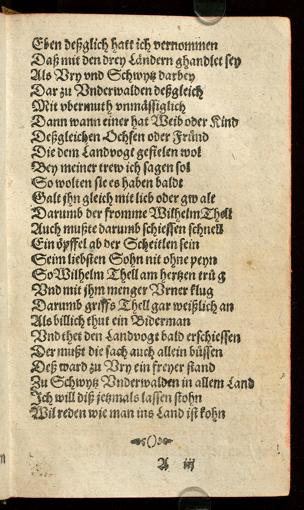 Eben deßglich hatt ich vernommen
Daß mit den drey Ländern ghandlet sey
Als Vry vnd Schwytz darbey
Dar zu Vnderwalden deßgleich
Mit vbermuth vnmässiglich
Dann wann einer hat Weib oder Kind
Deßgleichen Ochsen oder Fründ
Die dem Landvogt gefielen wol
Bey meiner trew ich sagen sol
So wolten sie es haben baldt
Galt jhn gleich mit lieb oder gwalt
Darumb der fromme Wilhelm Thell
Auch mußte darumb schiessen schnell
Ein öpffel ab der Scheitlen sein
Seim liebsten Sohn nit ohne peyn
So Wilhelm Thell am hertzen trüg
Vnd mit jhm menger Vrner klug
Darumb griffs Thell gar weißlich an
Als billich thut ein Biderman
Vnd thet den Landvogt bald erschiessen
Der mußt die sach auch allein büssen
Deß ward zu Vry ein freyer stand
Zu Schwytz Vnderwalden in allem Land
Ich will diß jetzmals lassen stohn
Wil reden wie man ins Land ist kohn
A iij